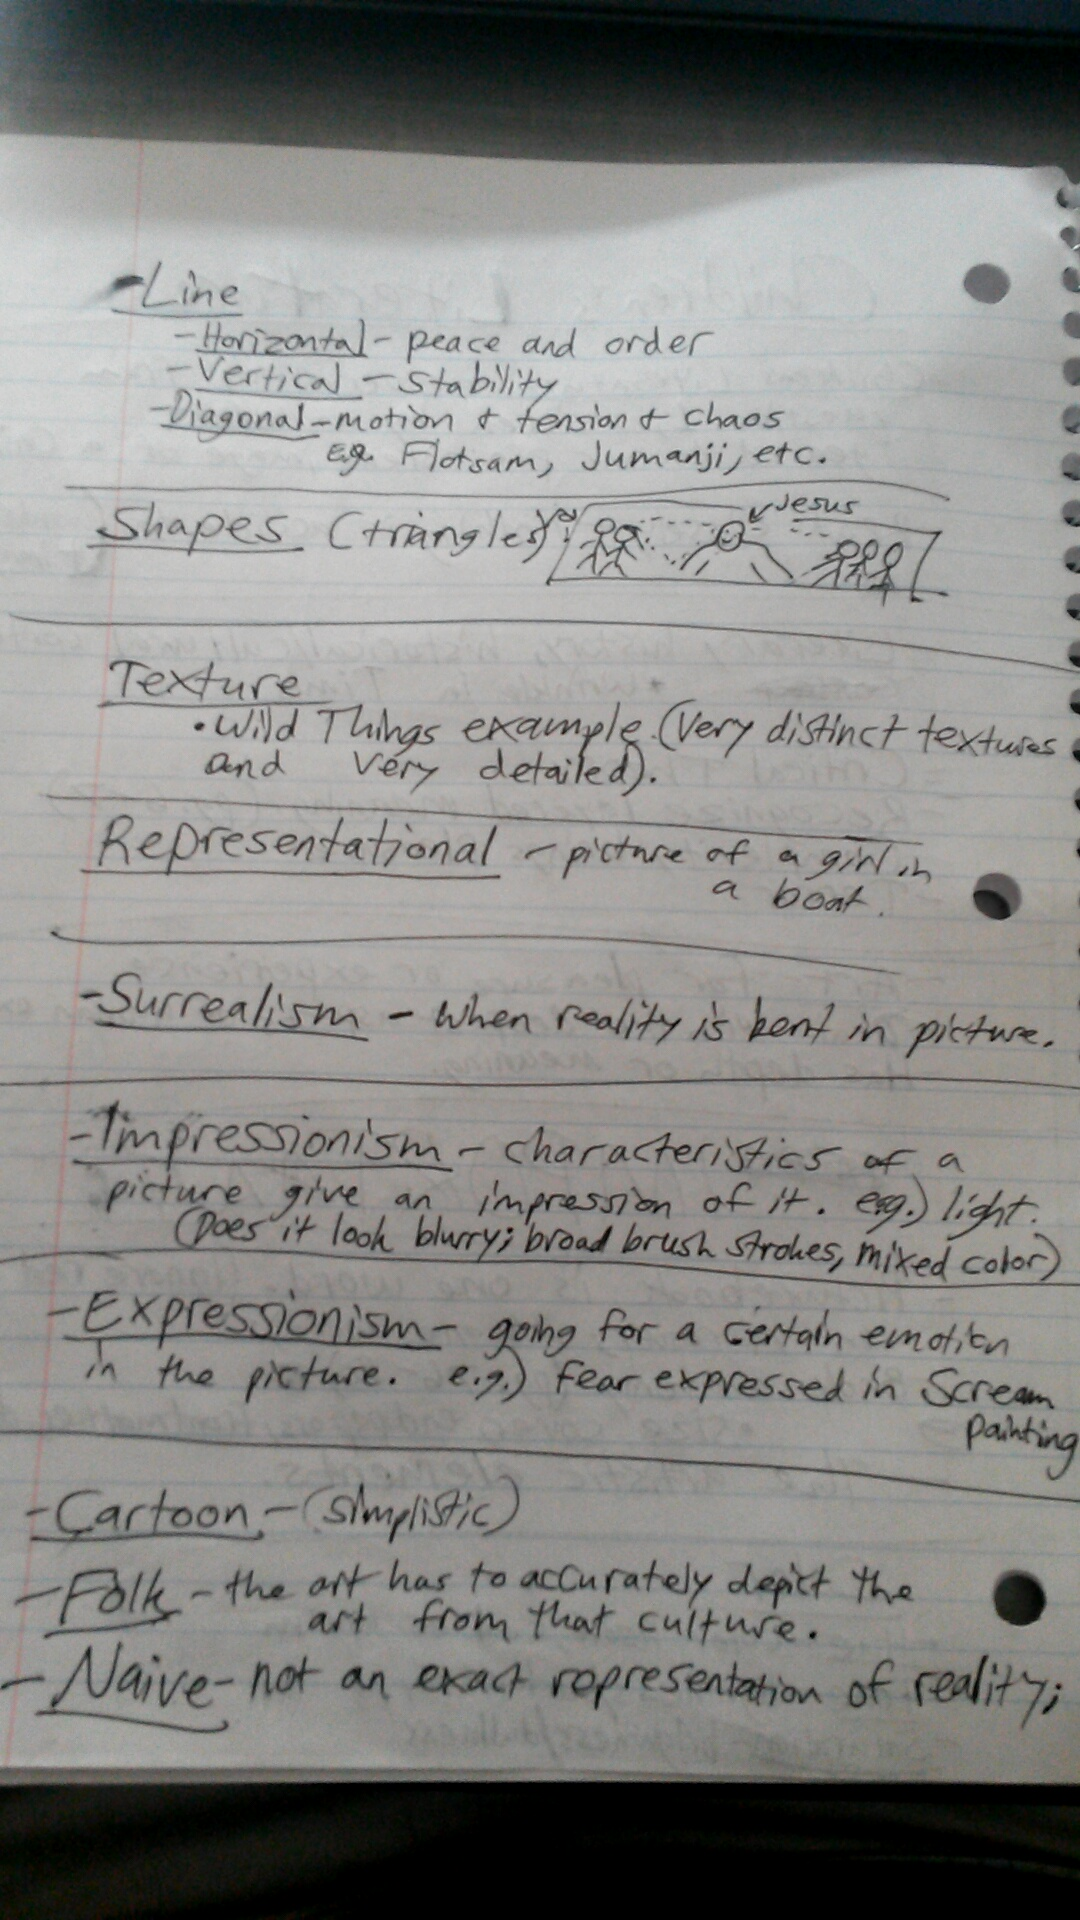 - Line
- Horizontal - peace and order
- Vertical - stability
- Diagonal - motion & tension & chaos
E.g. Flotsam, Jumanji, etc.
Shapes (triangles)
Jesus
Texture
• Wild Things example (Very distinct textures
and very detailed).
Representational - picture of a girl in
a boat.
- Surrealism - When reality is bent in picture.
- Impressionism - characteristics of a
picture give an impression of it. e.g.) light.
(Does it look blurry; broad brush strokes, mixed color)
- Expressionism - going for a certain emotion
in the picture. e.g.) fear expressed in Scream
painting
- Cartoon - (simplistic)
- Folk - the art has to accurately depict the
art from that culture.
- Naive - not an exact representation of reality;